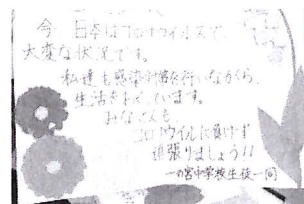 今、日本はコロナウイルスで、
大変な状況です。
私達も感染対策を行いながら、
生活をしています。
みなさんも、
コロナウイルスに負けず
頑張りましょう!!
一の宮中学校生徒一同